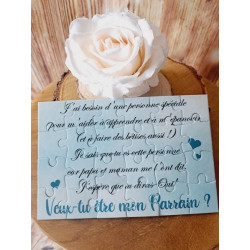 J'ai besoin d'une personne spéciale
pour m'aider à apprendre et à m'épanouir
(et à faire des bêtises aussi !)
Je sais que tu es cette personne
car papa et maman me l'ont dit.
J'espère que tu diras "Oui"
Veux-tu être mon Parrain ?